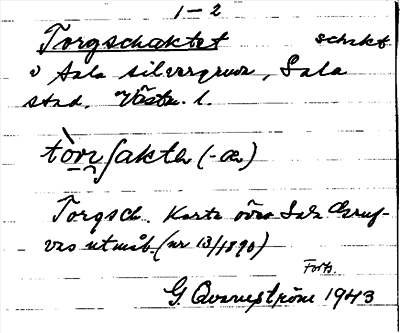 1-2
Torgschaktet schakt
i Sala silvergruva, Sala
stad. Västm. l.
tòrʃaktə (-æ)
Torgsch. Karta över Sala Gruf-
vas utmål (nr 13/1890)
Forts.
G. Qvarnström 1943